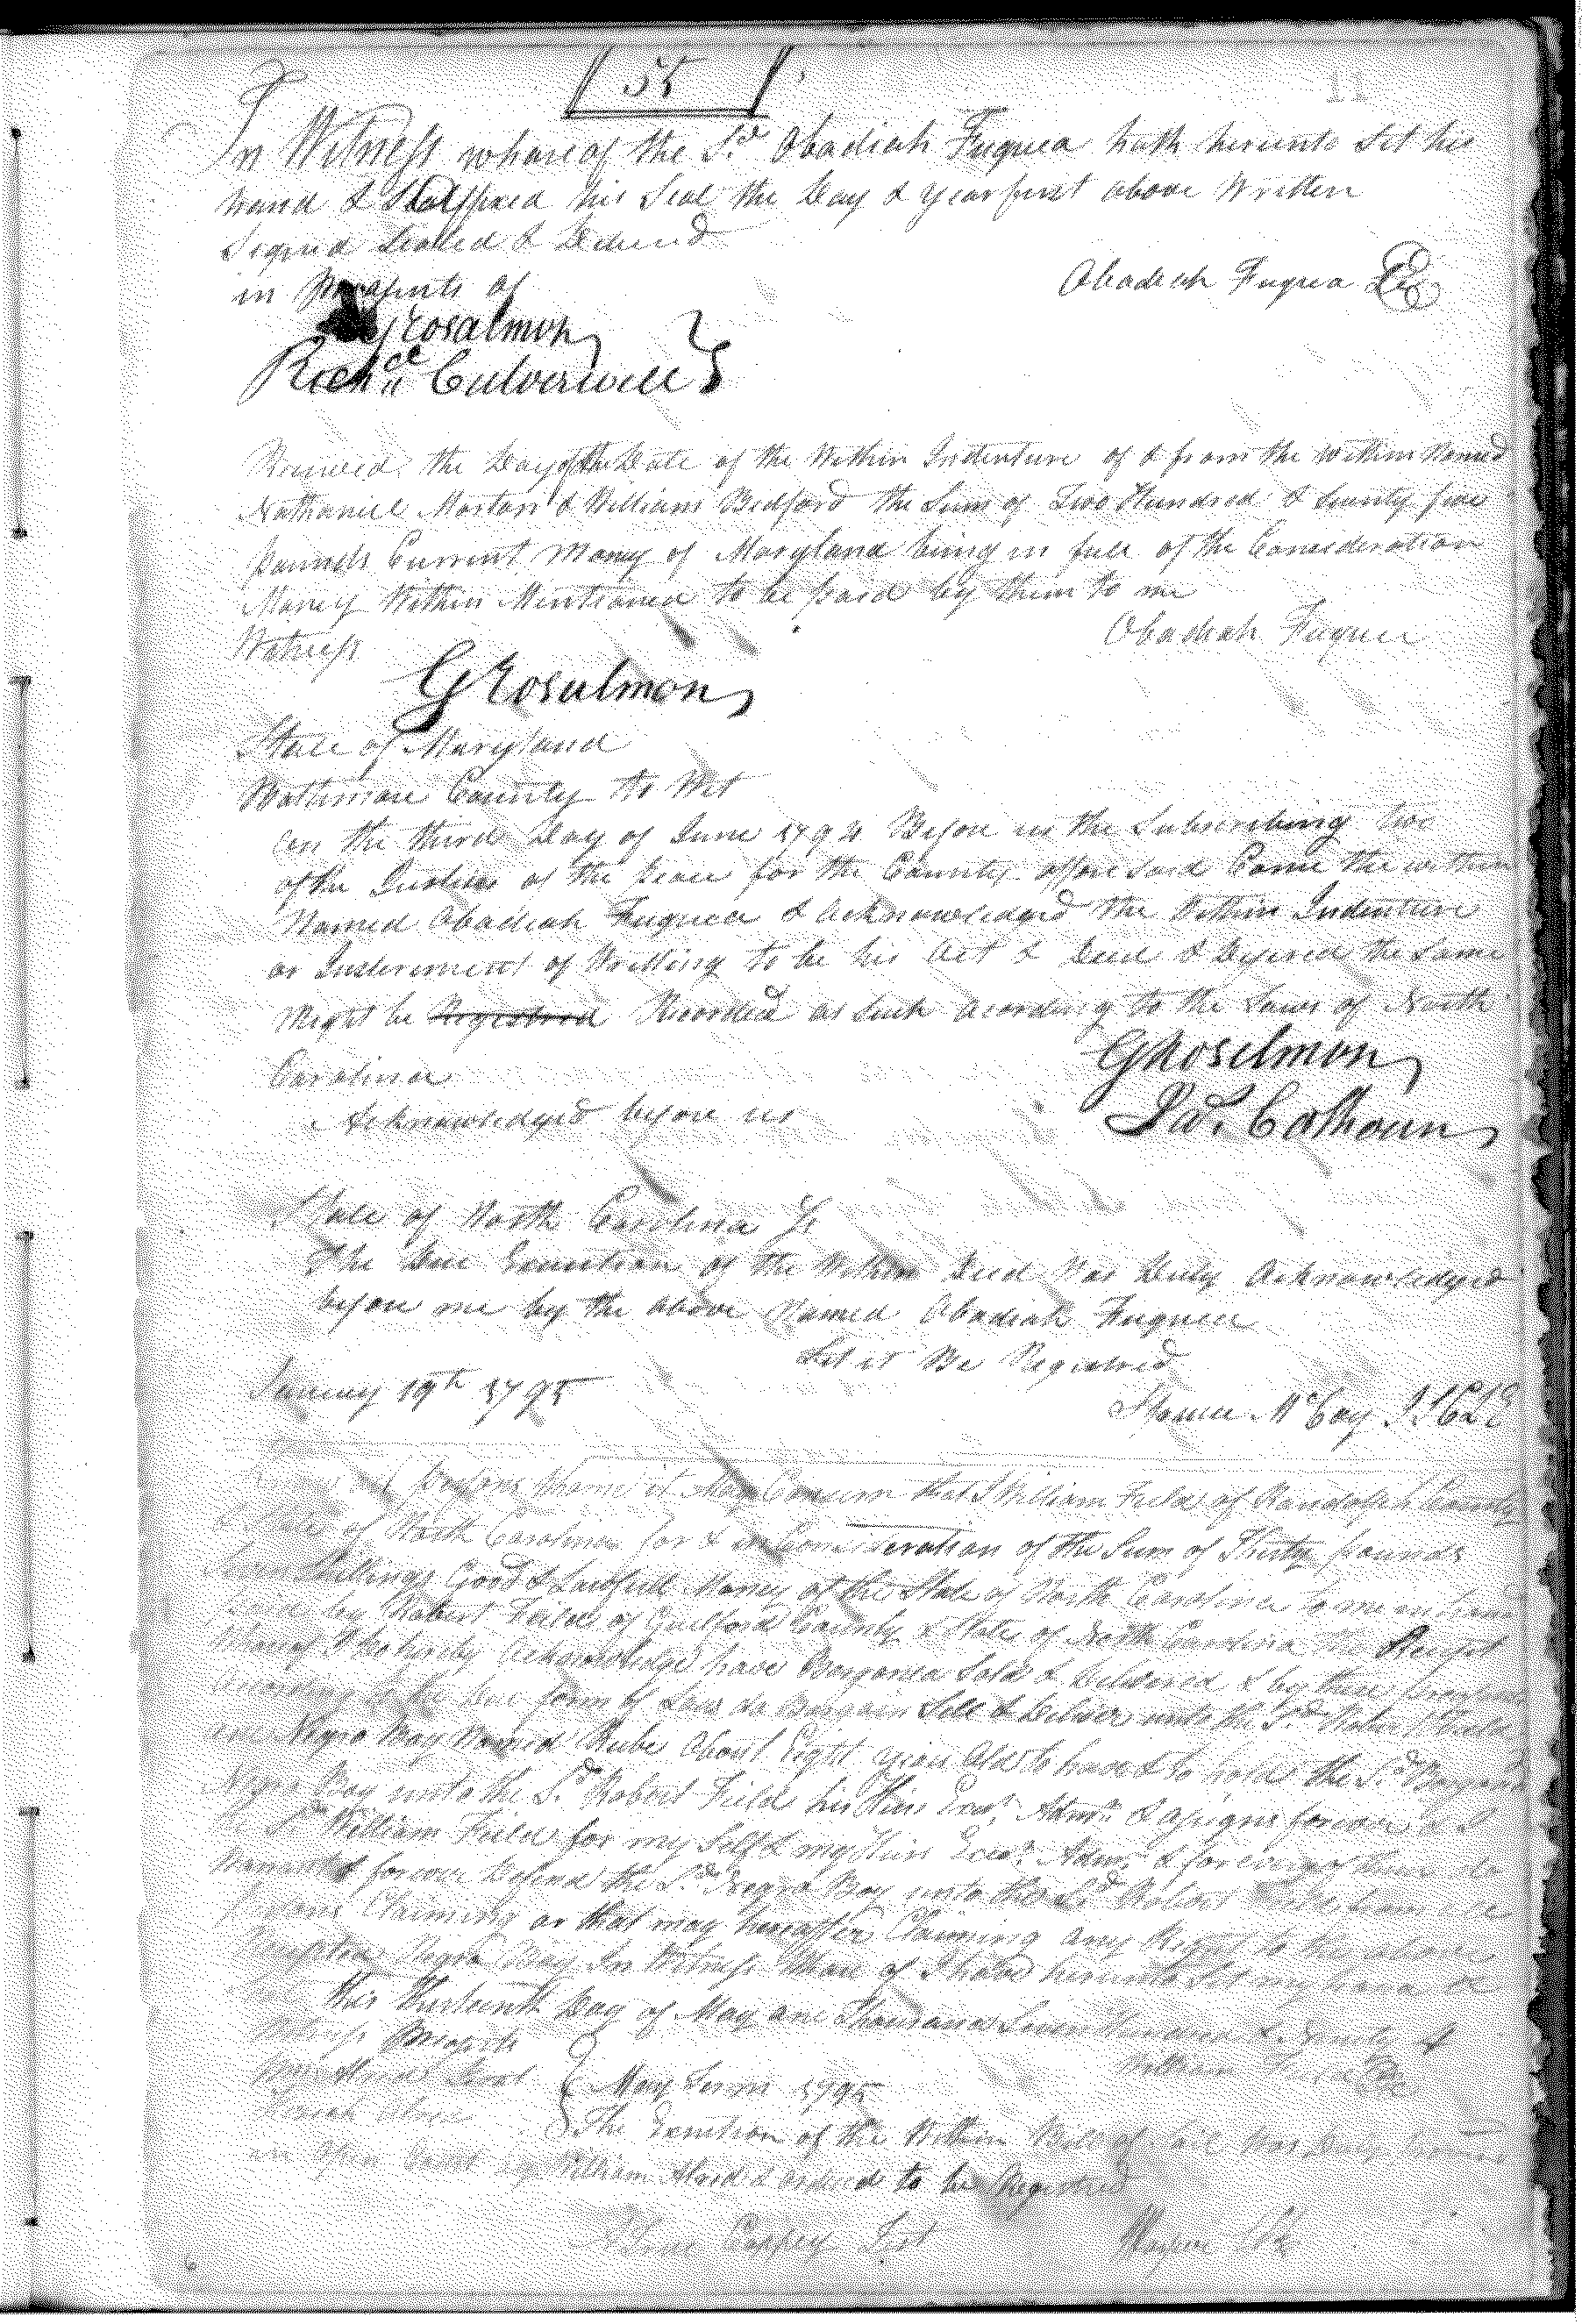 55
In Witness whareof the Sd Obadiah Fuquea hath hereunto Set his
hand & affixed his Seal the Day & year first above Written
Signd Sealed & Deliverd
in presents of
Obadiah Fuquea
GRosalmon
Richd Culverwell
Received the Day of the Date of the Within Indenture of & from the within Named
Nathaniel Morton & William Bedford the Sum of Two Hundred & Seventy five
pounds Current Money of Maryland being in full of the Consideration
Money Within Mentioned to be paid by them to me
Witness
Obadiah Fuquea
GRosalmon
State of Maryland
Baltimore County to Wit
on the third Day of June 1794 Before us the Subscribing two
of the Justices of the peace for the County afforesaid Came the within
Named Obadiah Fuquea & Acknowledged the Within Indenture
or Insterument of Writting to be his Act & Deed & Desired the Same
Might be Registred Recorded as Such acording to the Laws of North
Carolina
GRosalmon
Acknowledged before us
Jas. Calhoun
State of North Carolina
The Due Execution of the Within Deed Was Duly Acknowledged
before me by the above Named Obadiah Fuquea
Let it Be Registred
January 19th 1795
Spruce McCay
persons Whome it May Concern that I William Field of Randolph County
State of North Carolina for & in Consideration of the Sum of Thirty pounds
Shillings Good & Lawfull Money of the State of North Carolina to me in hand
by Robert Field of Guilford County & State of North Carolina the Receipt
Whereof I do hereby Acknowledge have Bargoned Sold & Delivered & by these presents
according to the Due form of Law do Bargain Sell & Deliver unto the Sd Robert Field
one Negro Boy Named Rube About Eight years Old to have & to hold the Sd
Negro Boy unto the Sd Robert Field his Heirs Exers Admrs & assigns forever & I
Sd William Field for my Self & my Heirs Exers Admrs & for every of them do
Warrant & forever Defend the Sd Negro Boy unto the Sd Robert Field from
persons Claiming or that may hereafter Claiming any Right to the above
Negro Boy In Witness Whare of I have hereunto Set my hand &
this thirteenth Day of May one Thousand Seven Hundred &
Witness
William
May Term 1795
The Exention of the Within Bill of Sale Was Duly
in Open Court by William Alred & ordered to be Registred